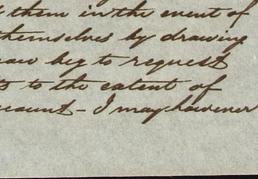 them in the event of
themselves by drawing
now beg to request
to the extent of
account - I may however